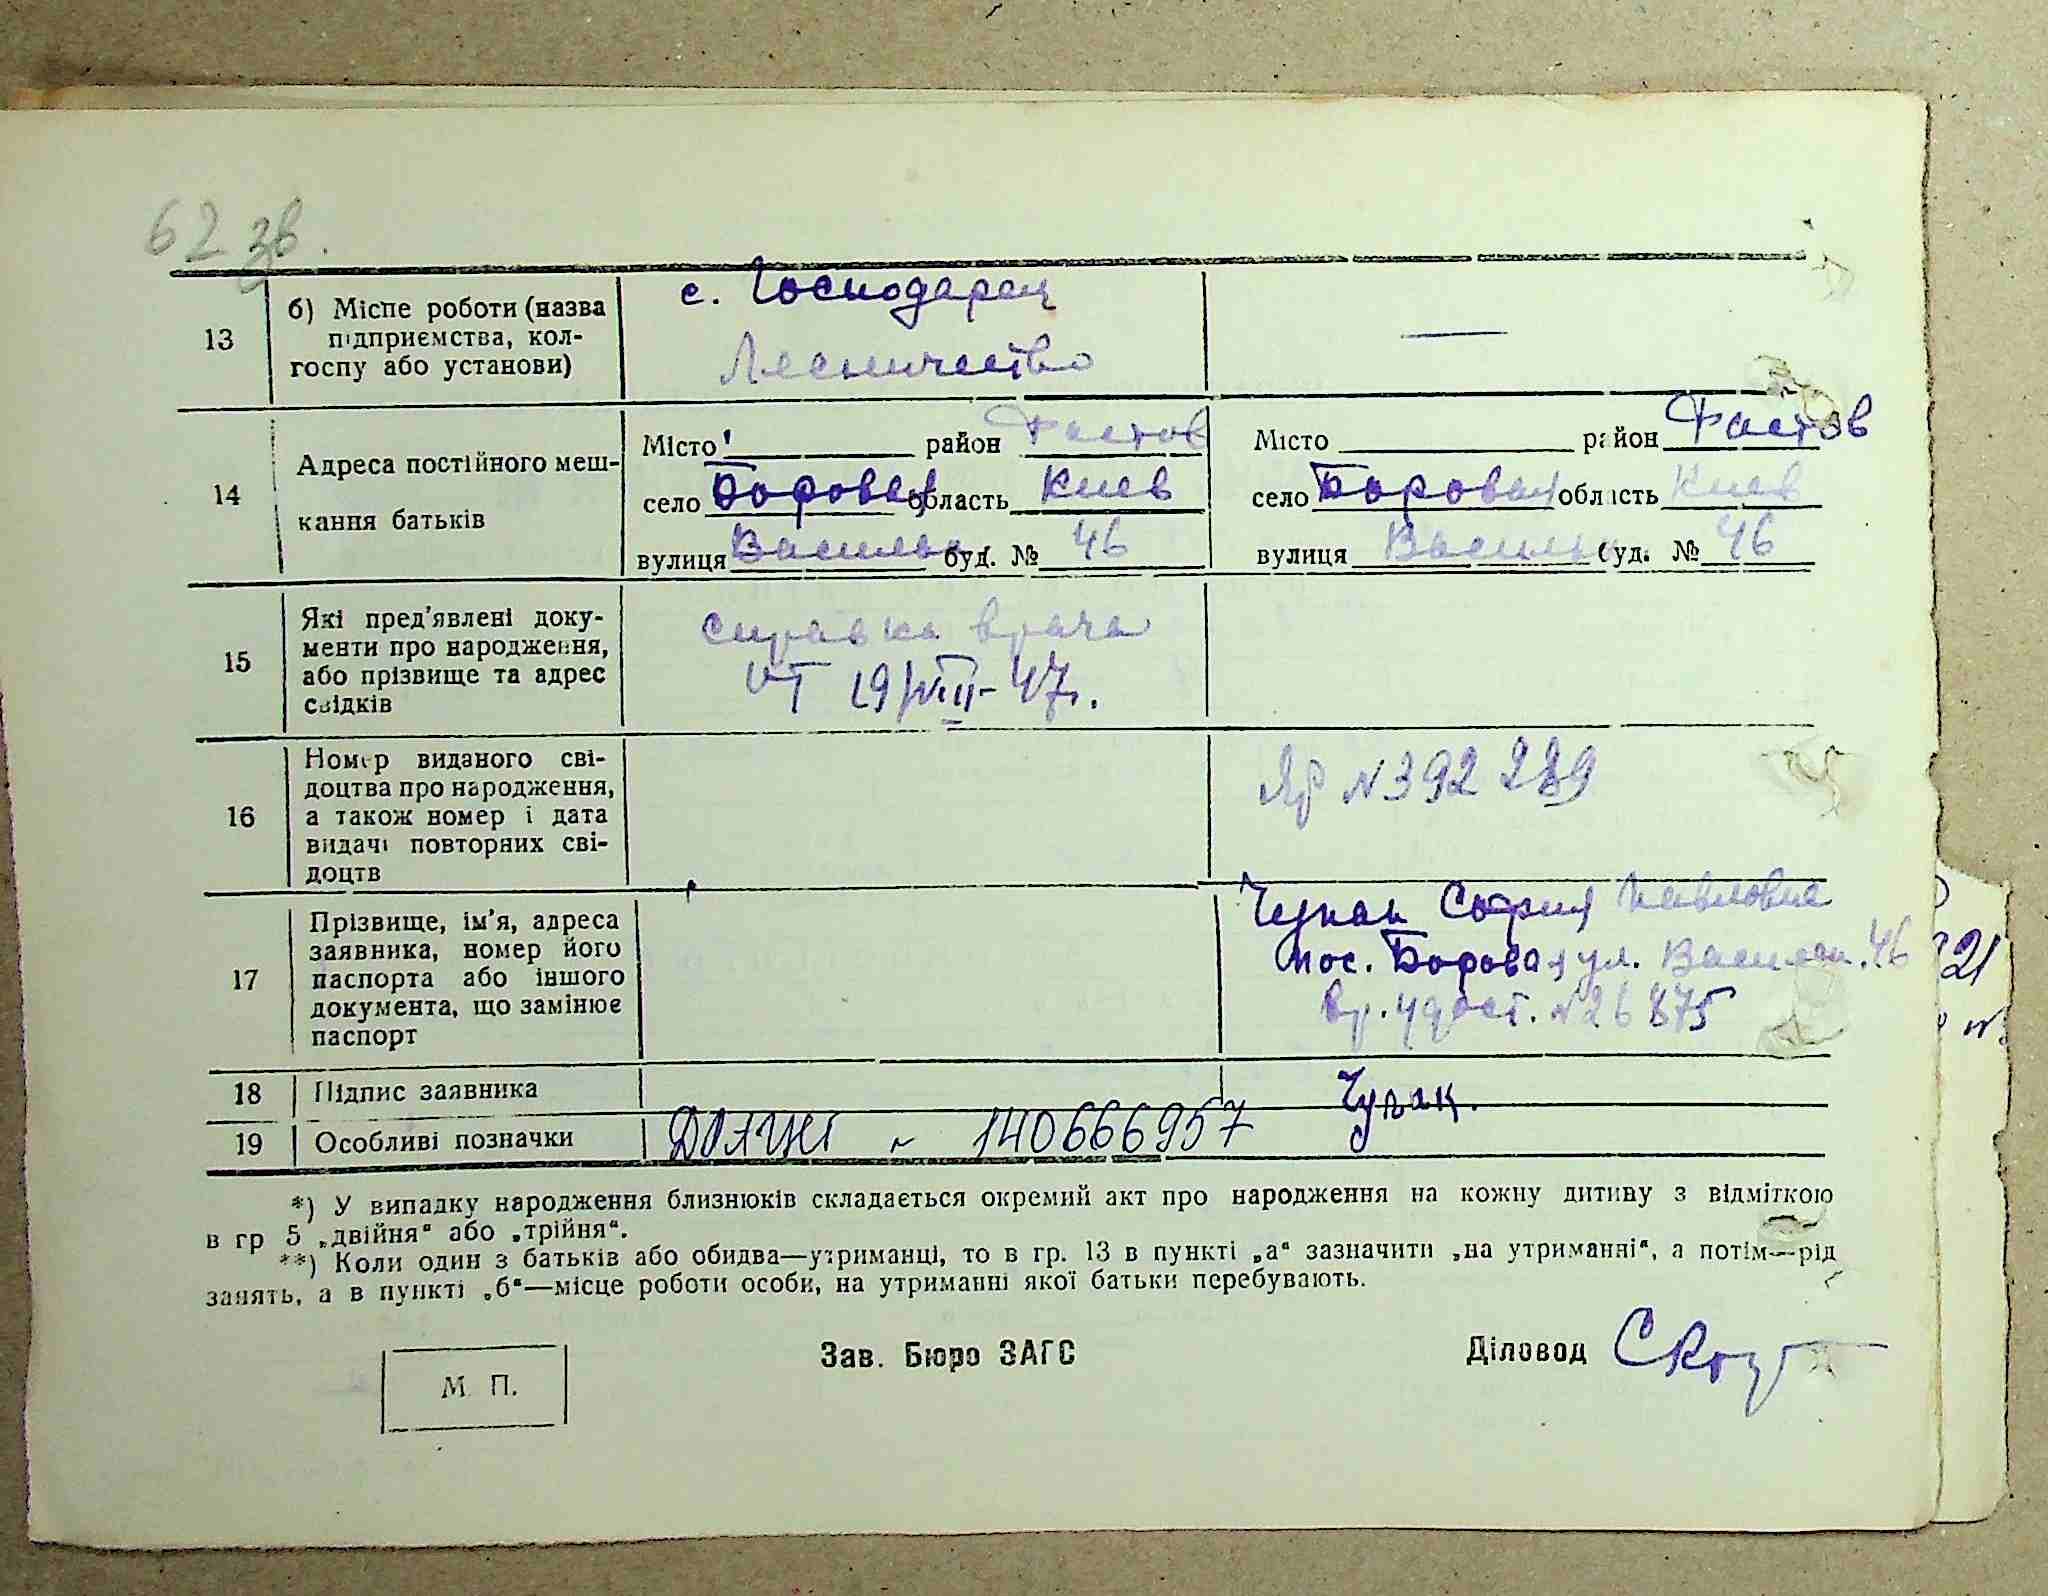 62 зв.
13
б) Місце роботи (назва
підприємства, кол-
госпу або установи)
с. Господарец
Лесничество
—
14
Адреса постійного меш-
кання батьків
Місто район Фастов
село Боровая область Киев
вулиця Васильк буд. № 46
Місто район Фастов
село Боровая область Киев
вулиця Васильк буд. № 46
15
Які пред'явлені доку-
менти про народження,
або прізвище та адрес
свідків
справка врача
от 19/VIII-47г.
16
Номер виданого сві-
доцтва про народження,
а також номер і дата
видачі повторних сві-
доцтв
N 392 289
17
Прізвище, ім'я, адреса
заявника, номер його
паспорта або іншого
документа, що замінює
паспорт
София Павловна
пос. Боровая ул. Васильк. 46
вр. удост. N 26875
18
Підпис заявника
19
Особливі позначки
140666957
*) У випадку народження близнюків складається окремий акт про народження на кожну дитину з відміткою
в гр 5 „двійня“ або „трійня“.
**) Коли один з батьків або обидва—утриманці, то в гр. 13 в пункті „а“ зазначити „на утриманні“, а потім—рід
занять, а в пункті „б“—місце роботи особи, на утриманні якої батьки перебувають.
М П.
Зав. Бюро ЗАГС
Діловод
21